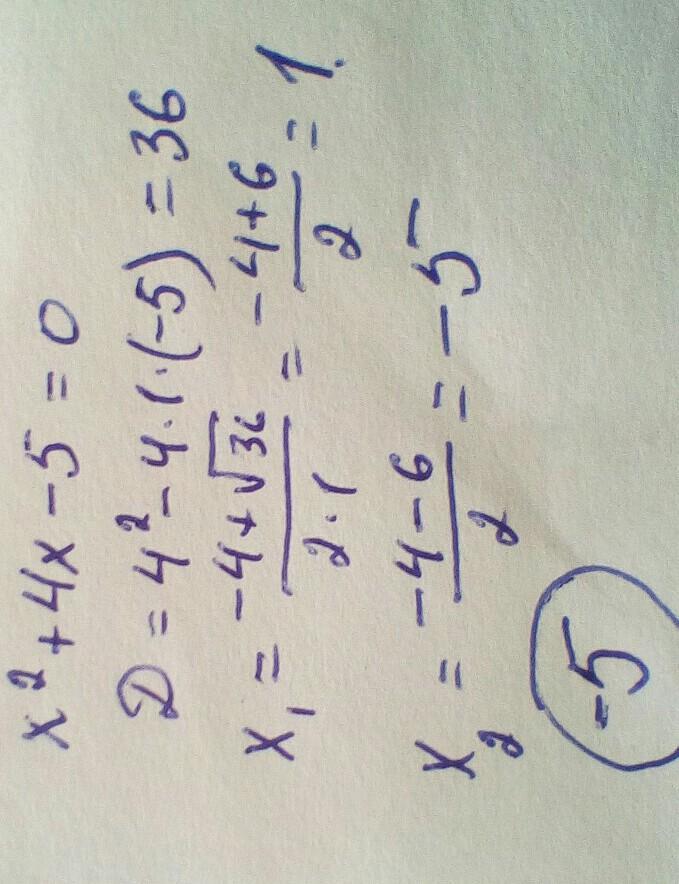 x² + 4x - 5 = 0
D = 4² - 4·1·(-5) = 36
x₁ = (-4+√36)/(2·1) = (-4+6)/2 = 1.
x₂ = (-4-6)/2 = -5
-5